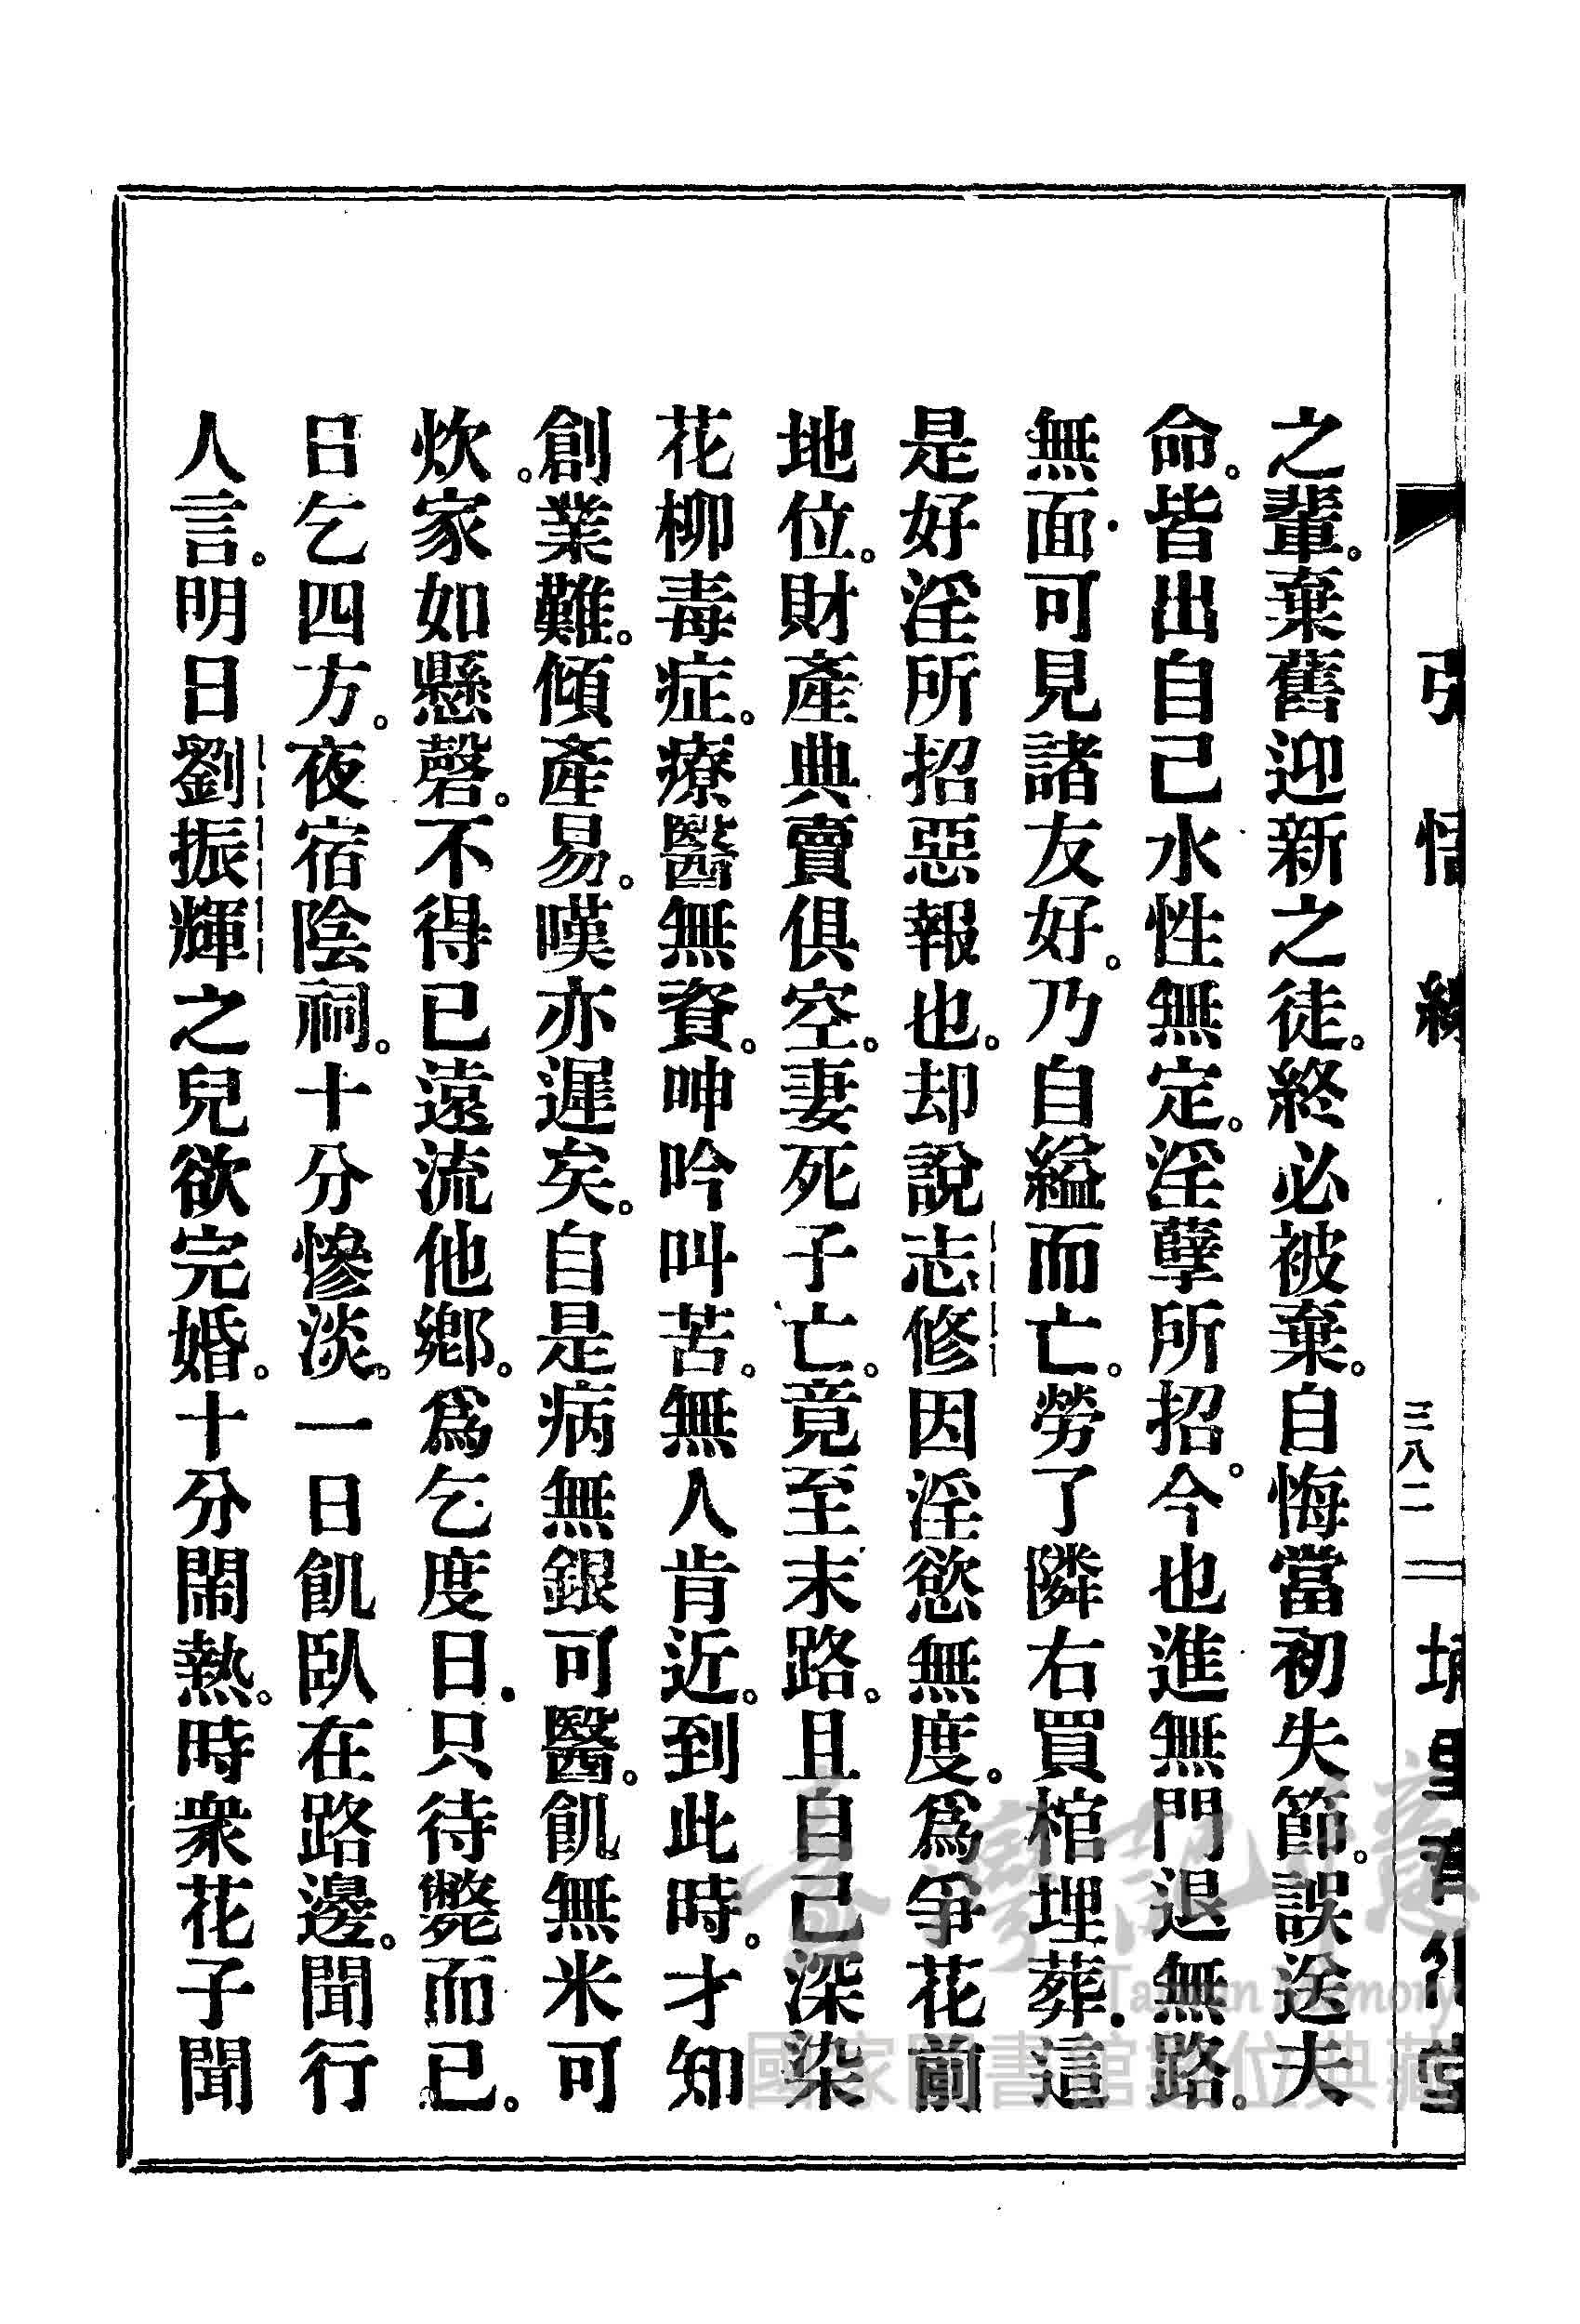 三八二
之輩。棄舊迎新之徒。終必被棄。自悔當初失節。誤送夫
命。皆出自己水性無定。淫孽所招。今也進無門退無路。
無面可見諸友好。乃自縊而亡。勞了隣右買棺埋葬。這
是好淫所招惡報也。却說志修因淫慾無度。爲爭花前
地位。財產典賣俱空。妻死子亡。竟至末路。且自己深染
花柳毒症。療醫無資。呻吟叫苦。無人肯近。到此時。才知
創業難。傾產易。嘆亦遲矣。自是病無銀可醫。飢無米可
炊。家如懸磬。不得已遠流他鄉。爲乞度日。只待斃而已。
日乞四方。夜宿陰祠。十分慘淡。一日飢臥在路邊。聞行
人言。明日劉振輝之兒欲完婚。十分鬧熱。時衆花子聞
臺灣記憶
Taiwan Memory
國家圖書館數位典藏